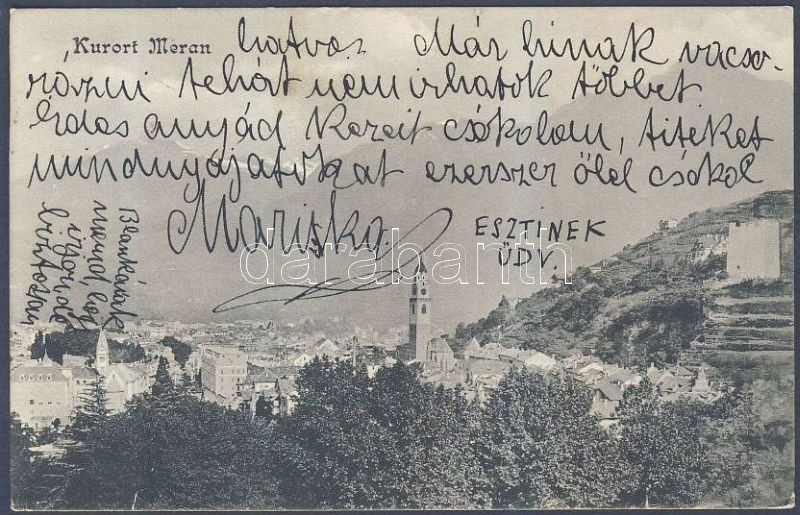 Kurort Meran
hatvos Már hinak vacso-
rázni tehát nem irhatok többet
Édas anyád kezeit csókolom, titeket
mindnyájatokat ezerszer ölel csókol
Mariska
ESZTINEK
ÜDV.
Blankának
majd
irjonde
biztosan
darabanth